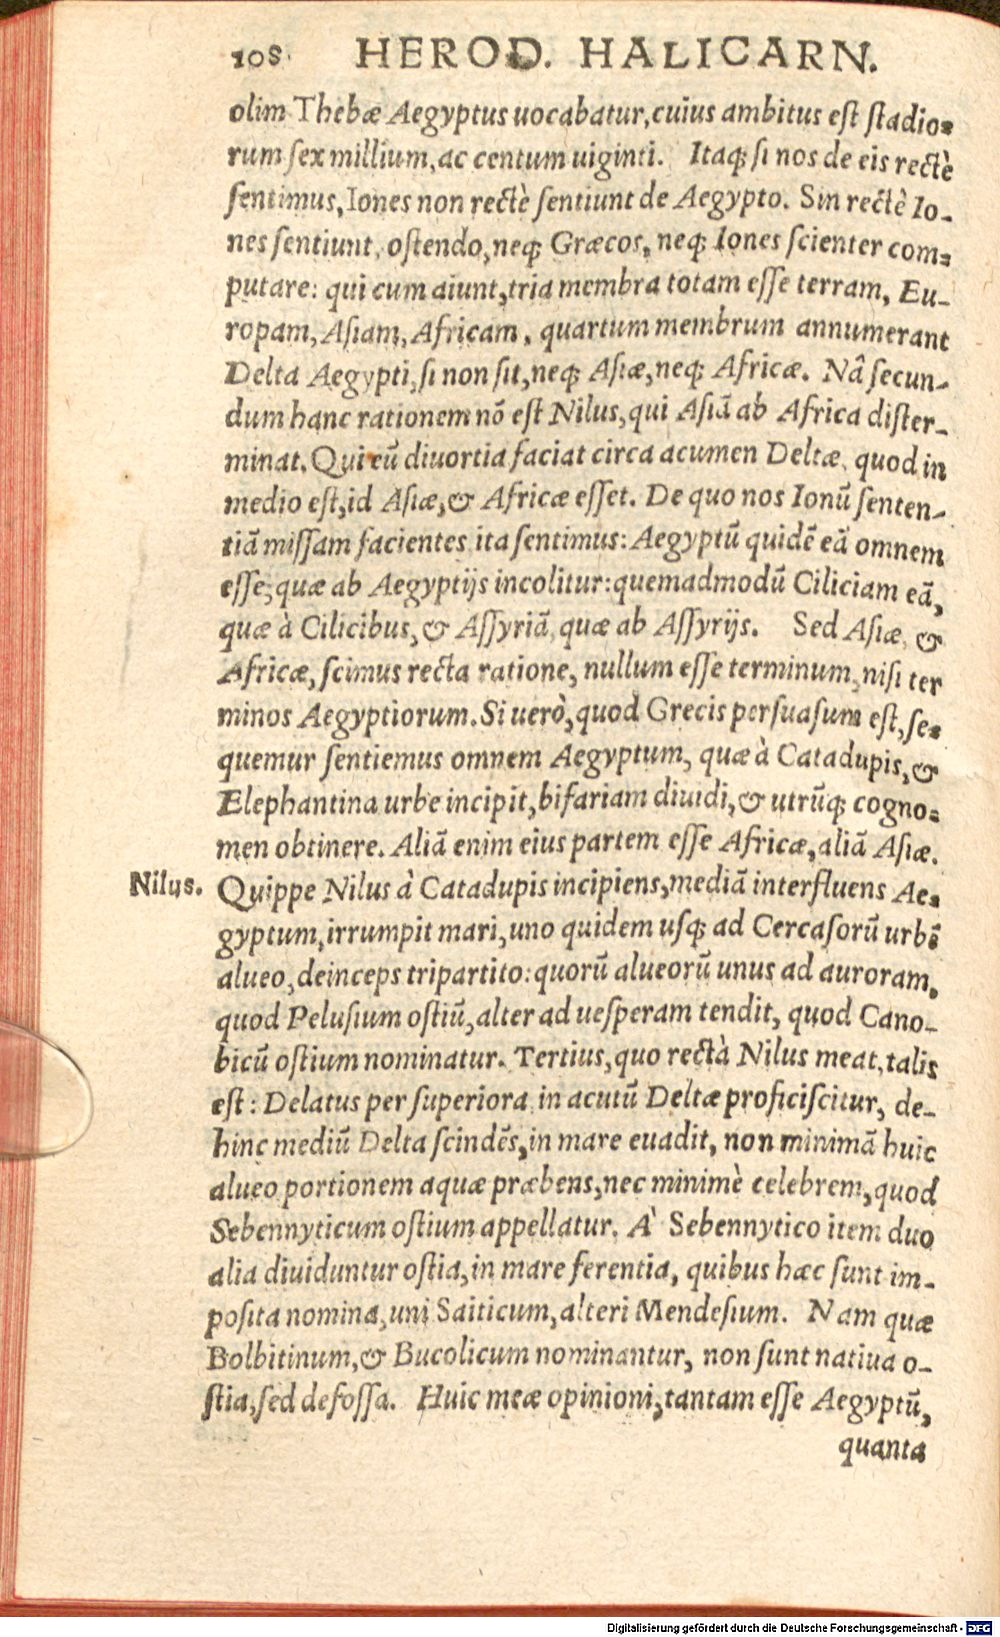 108. HEROD. HALICARN.
olim Thebæ Aegyptus uocabatur, cuius ambitus eſt ſtadio-
rum ſex millium, ac centum uiginti. Itaq; ſi nos de eis rectè
ſentimus, Iones non rectè ſentiunt de Aegypto. Sin rectè Io-
nes ſentiunt, oſtendo, neq; Græcos, neq; Iones ſcienter com-
putare: qui cum aiunt, tria membra totam eſſe terram, Eu-
ropam, Aſiam, Africam, quartum membrum annumerant
Delta Aegypti, ſi non ſit, neq; Aſiæ, neq; Africæ. Nã ſecun-
dum hanc rationem nõ eſt Nilus, qui Aſiã ab Africa diſter-
minat. Qui cũ diuortia faciat circa acumen Deltæ, quod in
medio eſt, id Aſiæ, & Africæ eſſet. De quo nos Ionũ ſenten-
tiã miſſam facientes ita ſentimus: Aegyptũ quidẽ eã omnem
eſſe, quæ ab Aegyptijs incolitur: quemadmodũ Ciliciam eã,
quæ à Cilicibus, & Aſſyriã, quæ ab Aſſyrijs. Sed Aſiæ, &
Africæ, ſcimus recta ratione, nullum eſſe terminum, niſi ter
minos Aegyptiorum. Si uerò, quod Grecis perſuaſum eſt, ſe-
quemur ſentiemus omnem Aegyptum, quæ à Catadupis, &
Elephantina urbe incipit, bifariam diuidi, & utrũq; cogno-
men obtinere. Aliã enim eius partem eſſe Africæ, aliã Aſiæ.
Nilus. Quippe Nilus à Catadupis incipiens, mediã interfluens Ae-
gyptum, irrumpit mari, uno quidem uſq; ad Cercaſorũ urbẽ
alueo, deinceps tripartito: quorũ alueorũ unus ad auroram,
quod Peluſium oſtiũ, alter ad ueſperam tendit, quod Cano-
bicũ oſtium nominatur. Tertius, quo rectà Nilus meat, talis
eſt: Delatus per ſuperiora in acutũ Deltæ proficiſcitur, de-
hinc mediũ Delta ſcindẽs, in mare euadit, non minimã huic
alueo portionem aquæ præbens, nec minimè celebrem, quod
Sebennyticum oſtium appellatur. À Sebennytico item duo
alia diuiduntur oſtia, in mare ferentia, quibus hæc ſunt im-
poſita nomina, uni Saiticum, alteri Mendeſium. Nam quæ
Bolbitinum, & Bucolicum nominantur, non ſunt natiua o-
ſtia, ſed defoſſa. Huic meæ opinioni, tantam eſſe Aegyptũ,
quanta
Digitalisierung gefördert durch die Deutsche Forschungsgemeinschaft - DFG